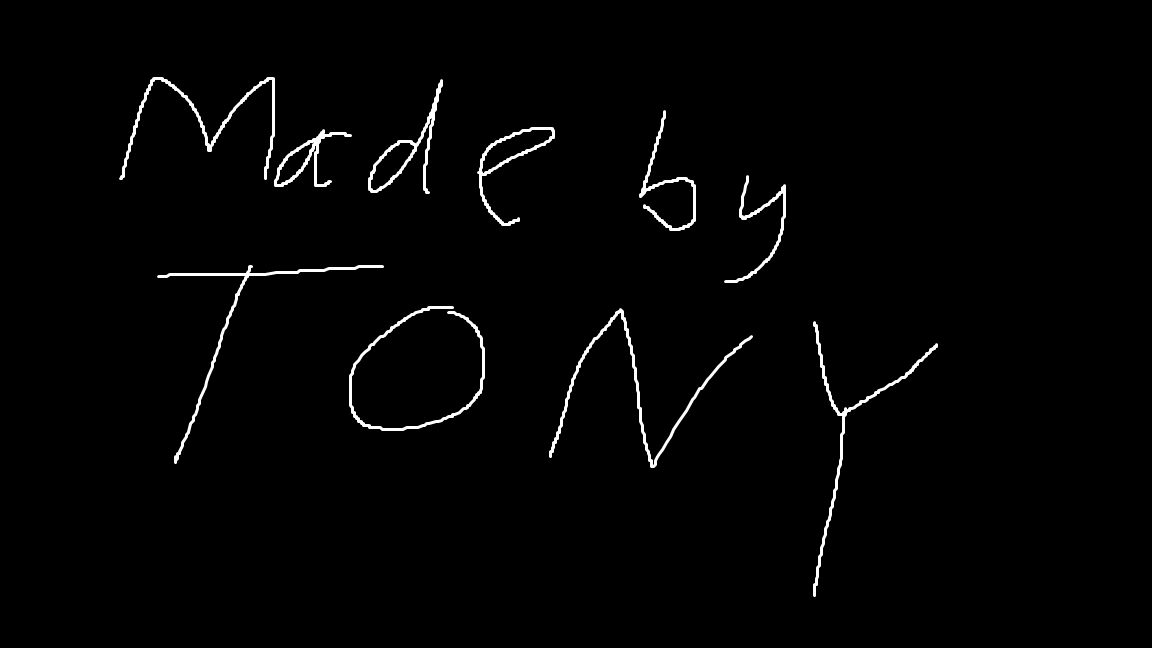 Made by
TONY